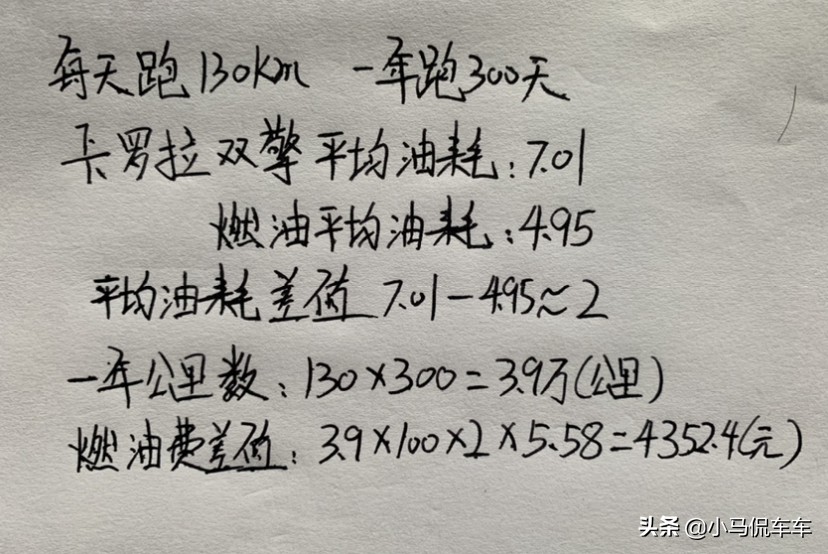 每天跑130km 一年跑300天
卡罗拉双擎平均油耗:7.01
燃油平均油耗:4.95
平均油耗差值 7.01-4.95≈2
一年公里数:130×300=3.9万(公里)
燃油费差值:3.9×100×2×5.58=4352.4(元)
头条 @小马侃车车